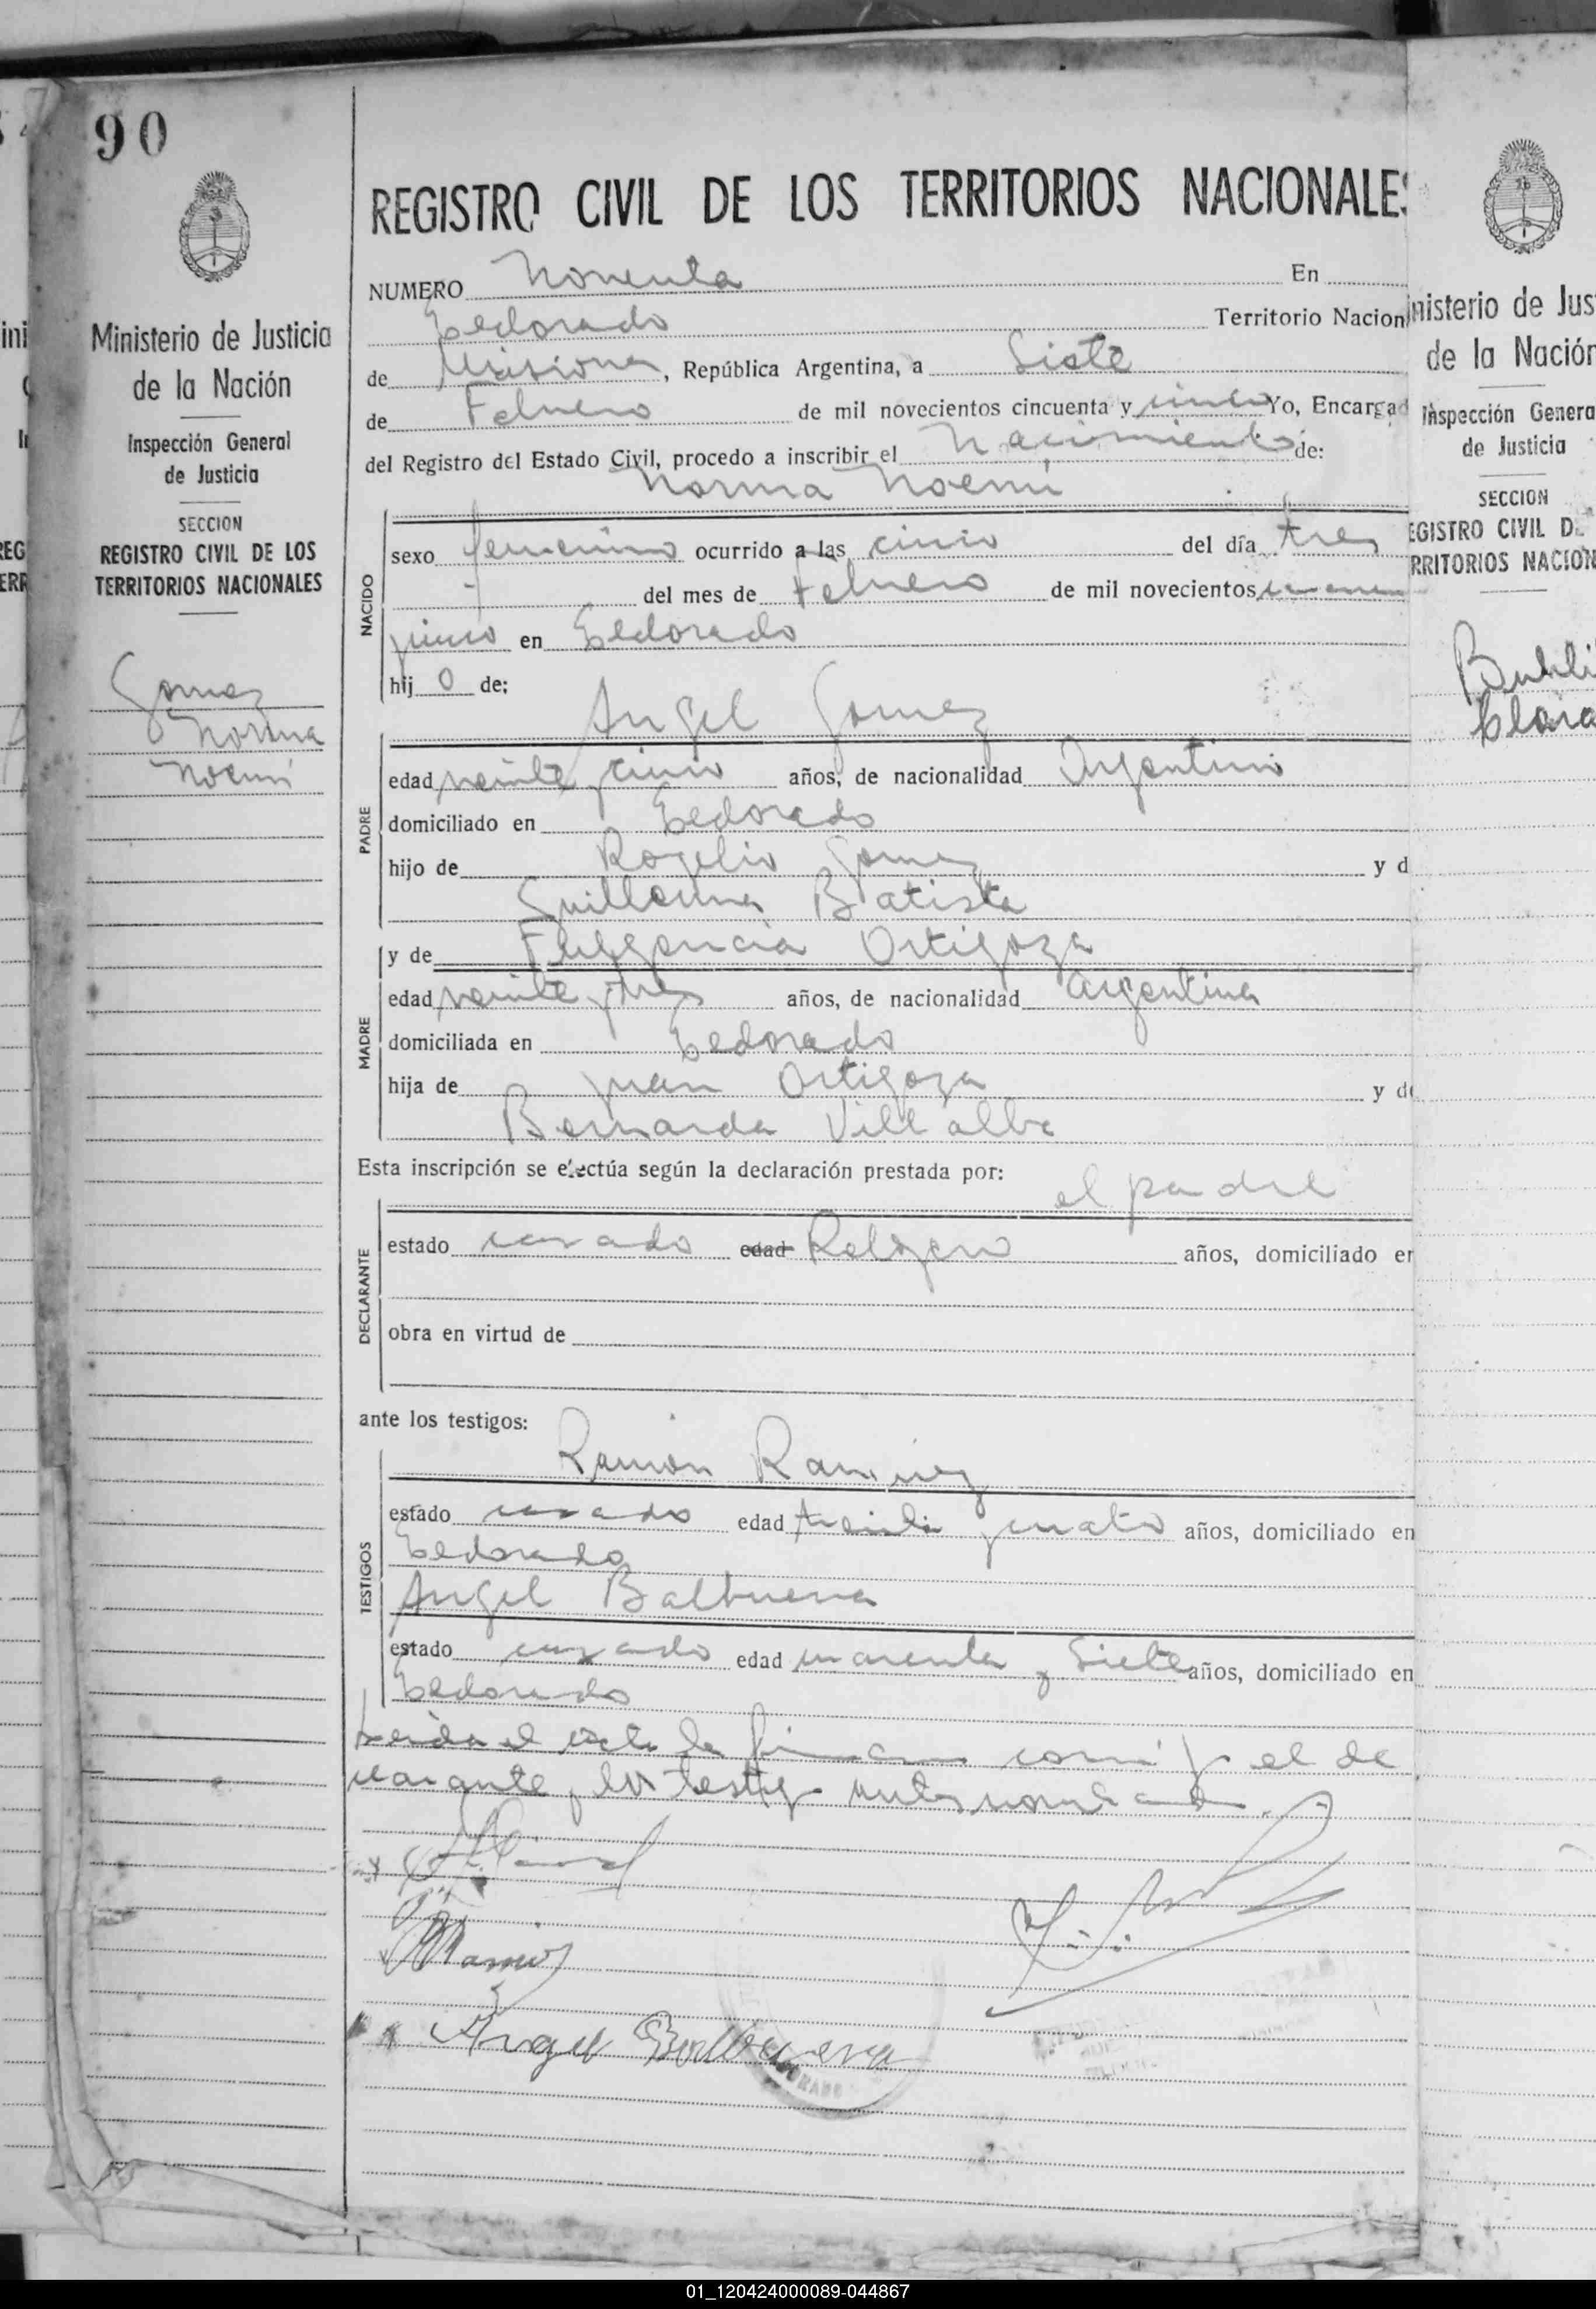 90
Ministerio de Justicia
de la Nación
Inspección General
de Justicia
SECCION
REGISTRO CIVIL DE LOS
TERRITORIOS NACIONALES
Gomez
Norma
Noemí
REGISTRO CIVIL DE LOS TERRITORIOS NACIONALES
NUMERO Noventa En
Eldorado Territorio Nacion
de Misiones, República Argentina, a Siete
de Febrero de mil novecientos cincuenta y cinco Yo, Encargad
del Registro del Estado Civil, procedo a inscribir el Nacimiento de:
Norma Noemí
NACIDO
sexo femenino ocurrido a las cinco del día tres
del mes de Febrero de mil novecientos
y cinco en Eldorado
hij o de:
Angel Gomez
PADRE
edad veinte y cinco años, de nacionalidad Argentino
domiciliado en Eldorado
hijo de Rogelio Gomez y d
Guillerma Batista
y de Fulgencia Ortigoza
MADRE
edad veinte y tres años, de nacionalidad argentina
domiciliada en Eldorado
hija de Juan Ortigoza y de
Bernarda Villalba
Esta inscripción se efectúa según la declaración prestada por:
el padre
DECLARANTE
estado casado edad Relojero años, domiciliado en
obra en virtud de
ante los testigos:
Ramón Ramirez
TESTIGOS
estado casado edad treinta y cuatro años, domiciliado en
Eldorado
Angel Balbuena
estado casado edad cuarenta y Siete años, domiciliado en
Eldorado
Leida el acta la firmaron conmigo el de
clarante y los testigos antes nombrados.
Ramirez
Angel Balbuena
inisterio de Jus
de la Nación
Inspección Genera
de Justicia
SECCION
EGISTRO CIVIL DE
RRITORIOS NACION
Clara
01_120424000089-044867